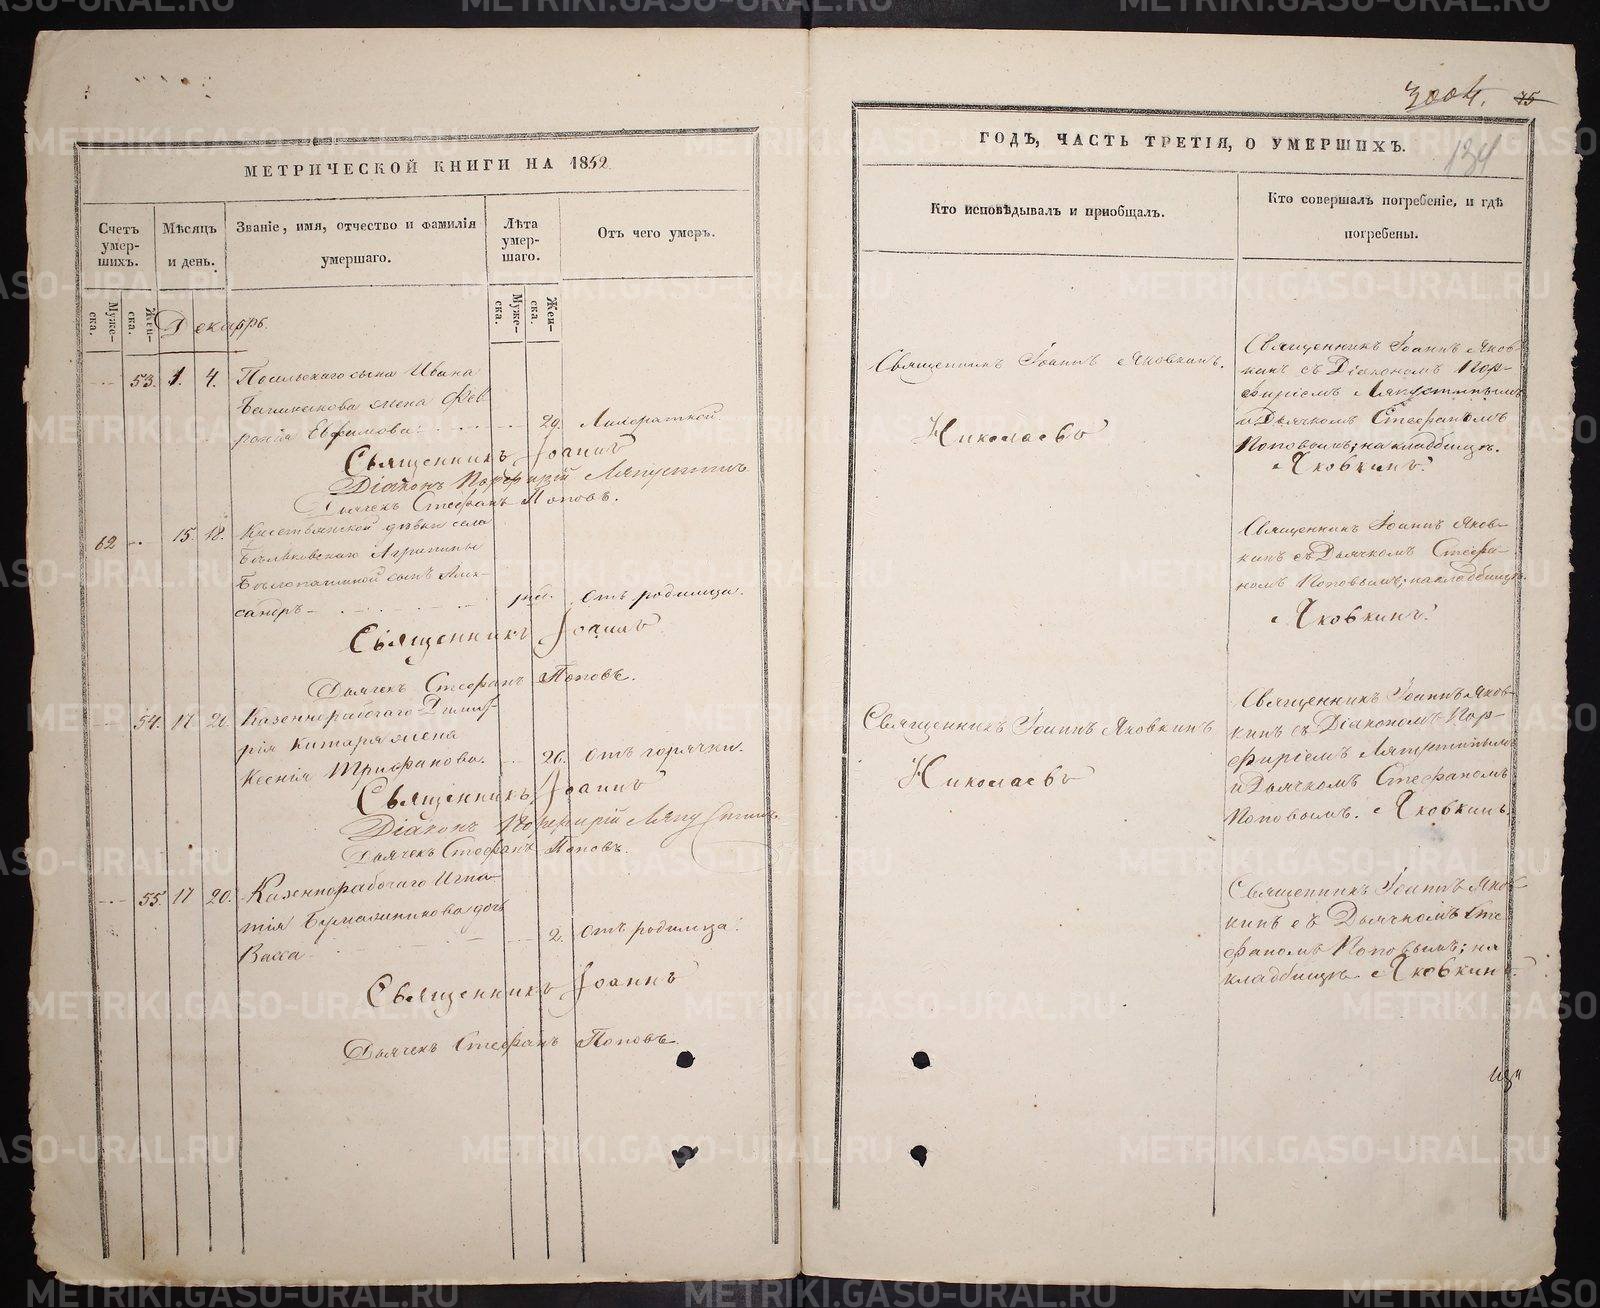 МЕТРИЧЕСКОЙ КНИГИ НА 1852
Счетъ умер- шихъ.
Мѣсяцъ и день.
Званіе, имя, отчество и фамилія умершаго.
Лѣта умер- шаго.
Отъ чего умеръ.
Муже- ска.
Жен- ска.
Муже- ска.
Жен- ска.
Декабрь.
53. 1. 4.
сына Ивана
жена Фев
ронія Евфимова 29. Лихораткой
Священникъ Іоаннъ
Діаконъ Порфирій Ляпустинъ
Дьячекъ Стефанъ Поповъ.
62 15. 18. девки села
Агрипины
сынъ Алек-
сандръ отъ родимца.
Священникъ Іоаннъ
Дьячекъ Стефанъ Поповъ.
54. 17 20. Казеннорабочаго Димит
рія Китаря жена
Ксенія Трифанова. 26. отъ горячки.
Священникъ Іоаннъ
Діаконъ Порфирій Ляпустинъ
Дьячекъ Стефанъ Поповъ.
55. 17 20. Казеннорабочаго Игна-
тія дочь
Васса 2. отъ родимца.
Священникъ Іоаннъ
Дьячекъ Стефанъ Поповъ.
3004. 75
134
ГОДЪ, ЧАСТЬ ТРЕТІЯ, О УМЕРШИХЪ.
Кто исповѣдывалъ и пріобщалъ.
Кто совершалъ погребеніе, и гдѣ погребены.
Священникъ Іоаннъ Яковкинъ.
Николаевъ
Священникъ Іоаннъ Яков-
кинъ съ Діакономъ Пор-
фиріемъ Ляпустинымъ
и Дьячкомъ Стефаномъ
Поповымъ; на кладбищѣ.
Яковкинъ.
Священникъ Іоаннъ Яков-
кинъ съ Дьячкомъ Стефа-
номъ Поповымъ; на кладбищѣ.
Яковкинъ.
Священникъ Іоаннъ Яковкинъ
Николаевъ
Священникъ Іоаннъ Яков-
кинъ съ Діакономъ Пор-
фиріемъ Ляпустинымъ
и Дьячкомъ Стефаномъ
Поповымъ. Яковкинъ.
Священникъ Іоаннъ Яков-
кинъ съ Дьячкомъ Сте
фаномъ Поповымъ; на
кладбищѣ. Яковкинъ.
METRIKI.GASO-URAL.RU